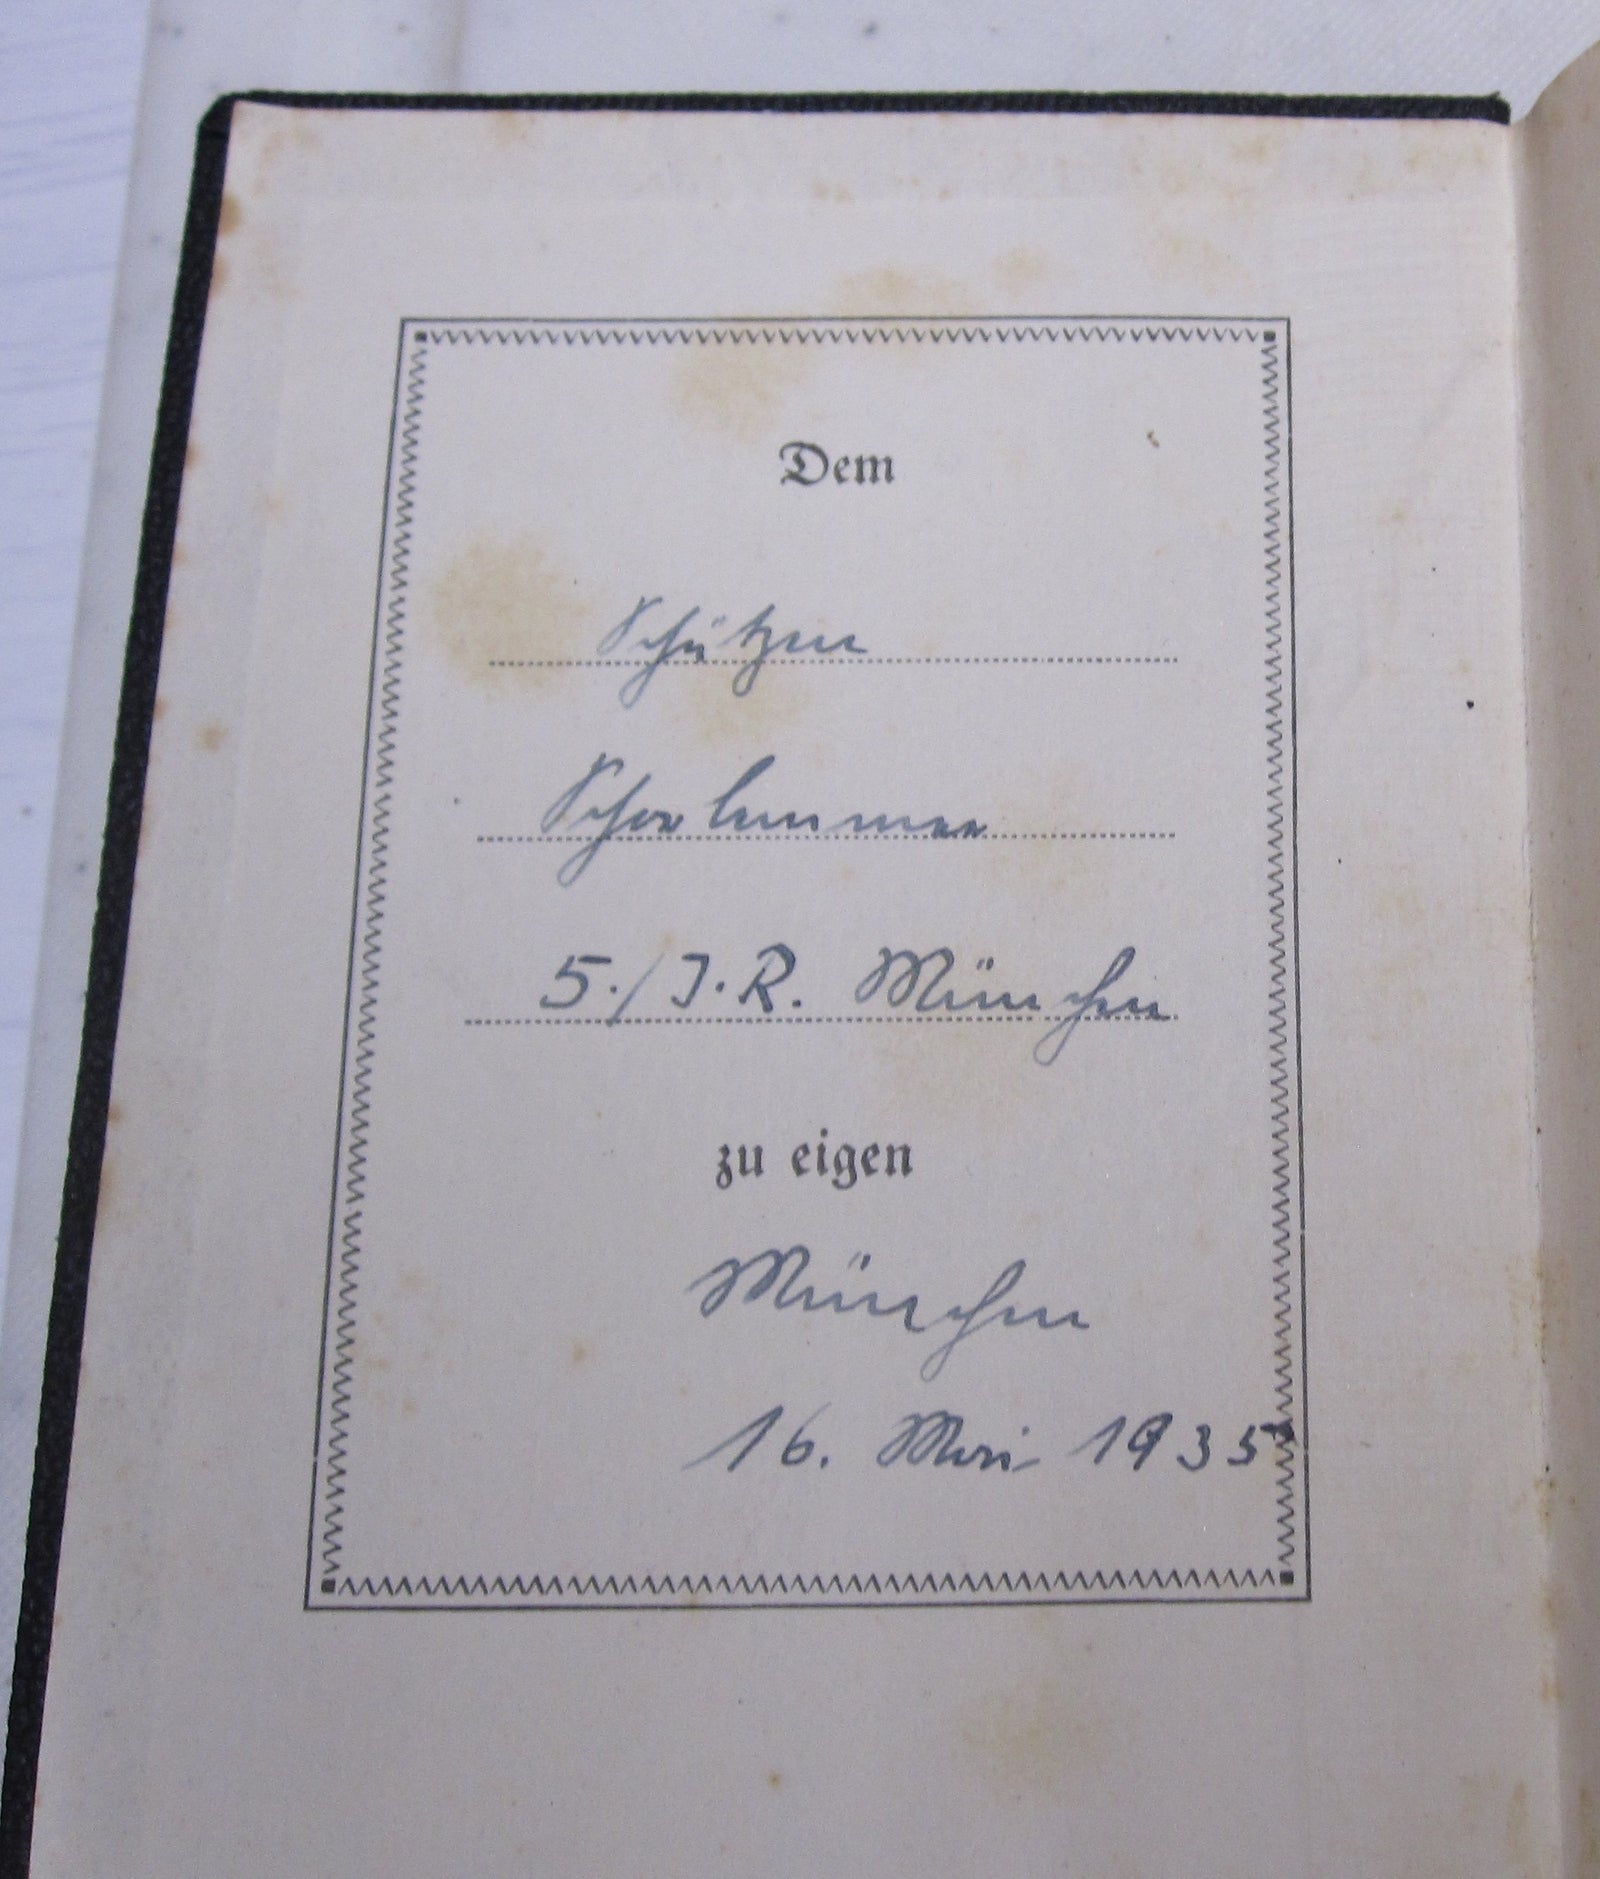 Dem
Schützen
Schorlemmer
5./J.R. München
zu eigen
München
16. Mai 1935